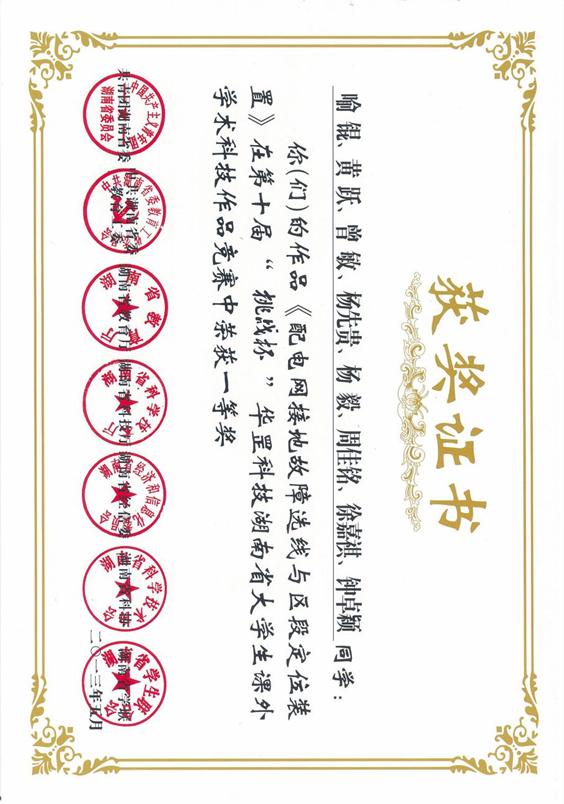 获奖证书
喻锟、黄跃、曾敏、杨先贵、杨毅、周佳铭、徐嘉祺、钟卓颖 同学：
你(们)的作品《配电网接地故障选线与区段定位装
置》在第十届“挑战杯”华罡科技湖南省大学生课外
学术科技作品竞赛中荣获一等奖
共青团湖南省委 中共湖南省委教育工委 湖南省教育厅 湖南省科技厅 湖南省经信委 湖南省科协 湖南省学联
二〇一三年五月